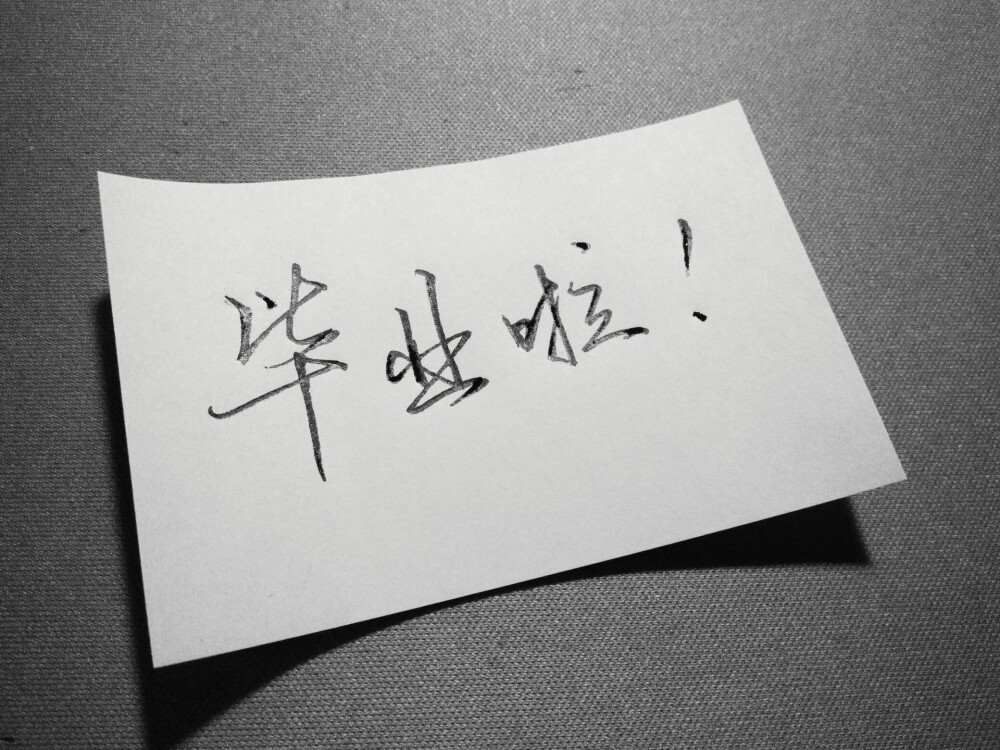 毕业啦！